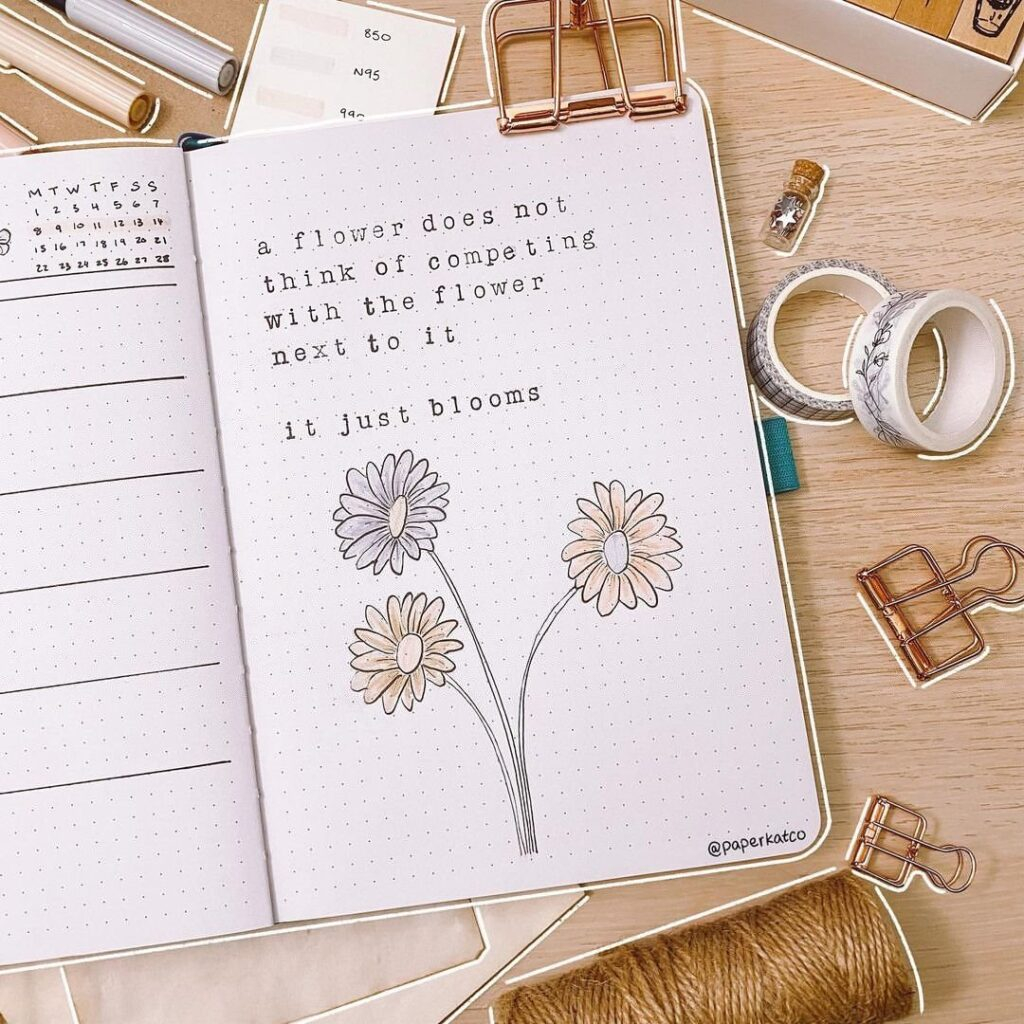 850
N95
990
M T W T F S S
1 2 3 4 5 6 7
8 9 10 11 12 13 14
15 16 17 18 19 20 21
22 23 24 25 26 27 28
a flower does not
think of competing
with the flower
next to it
it just blooms
@paperkatco